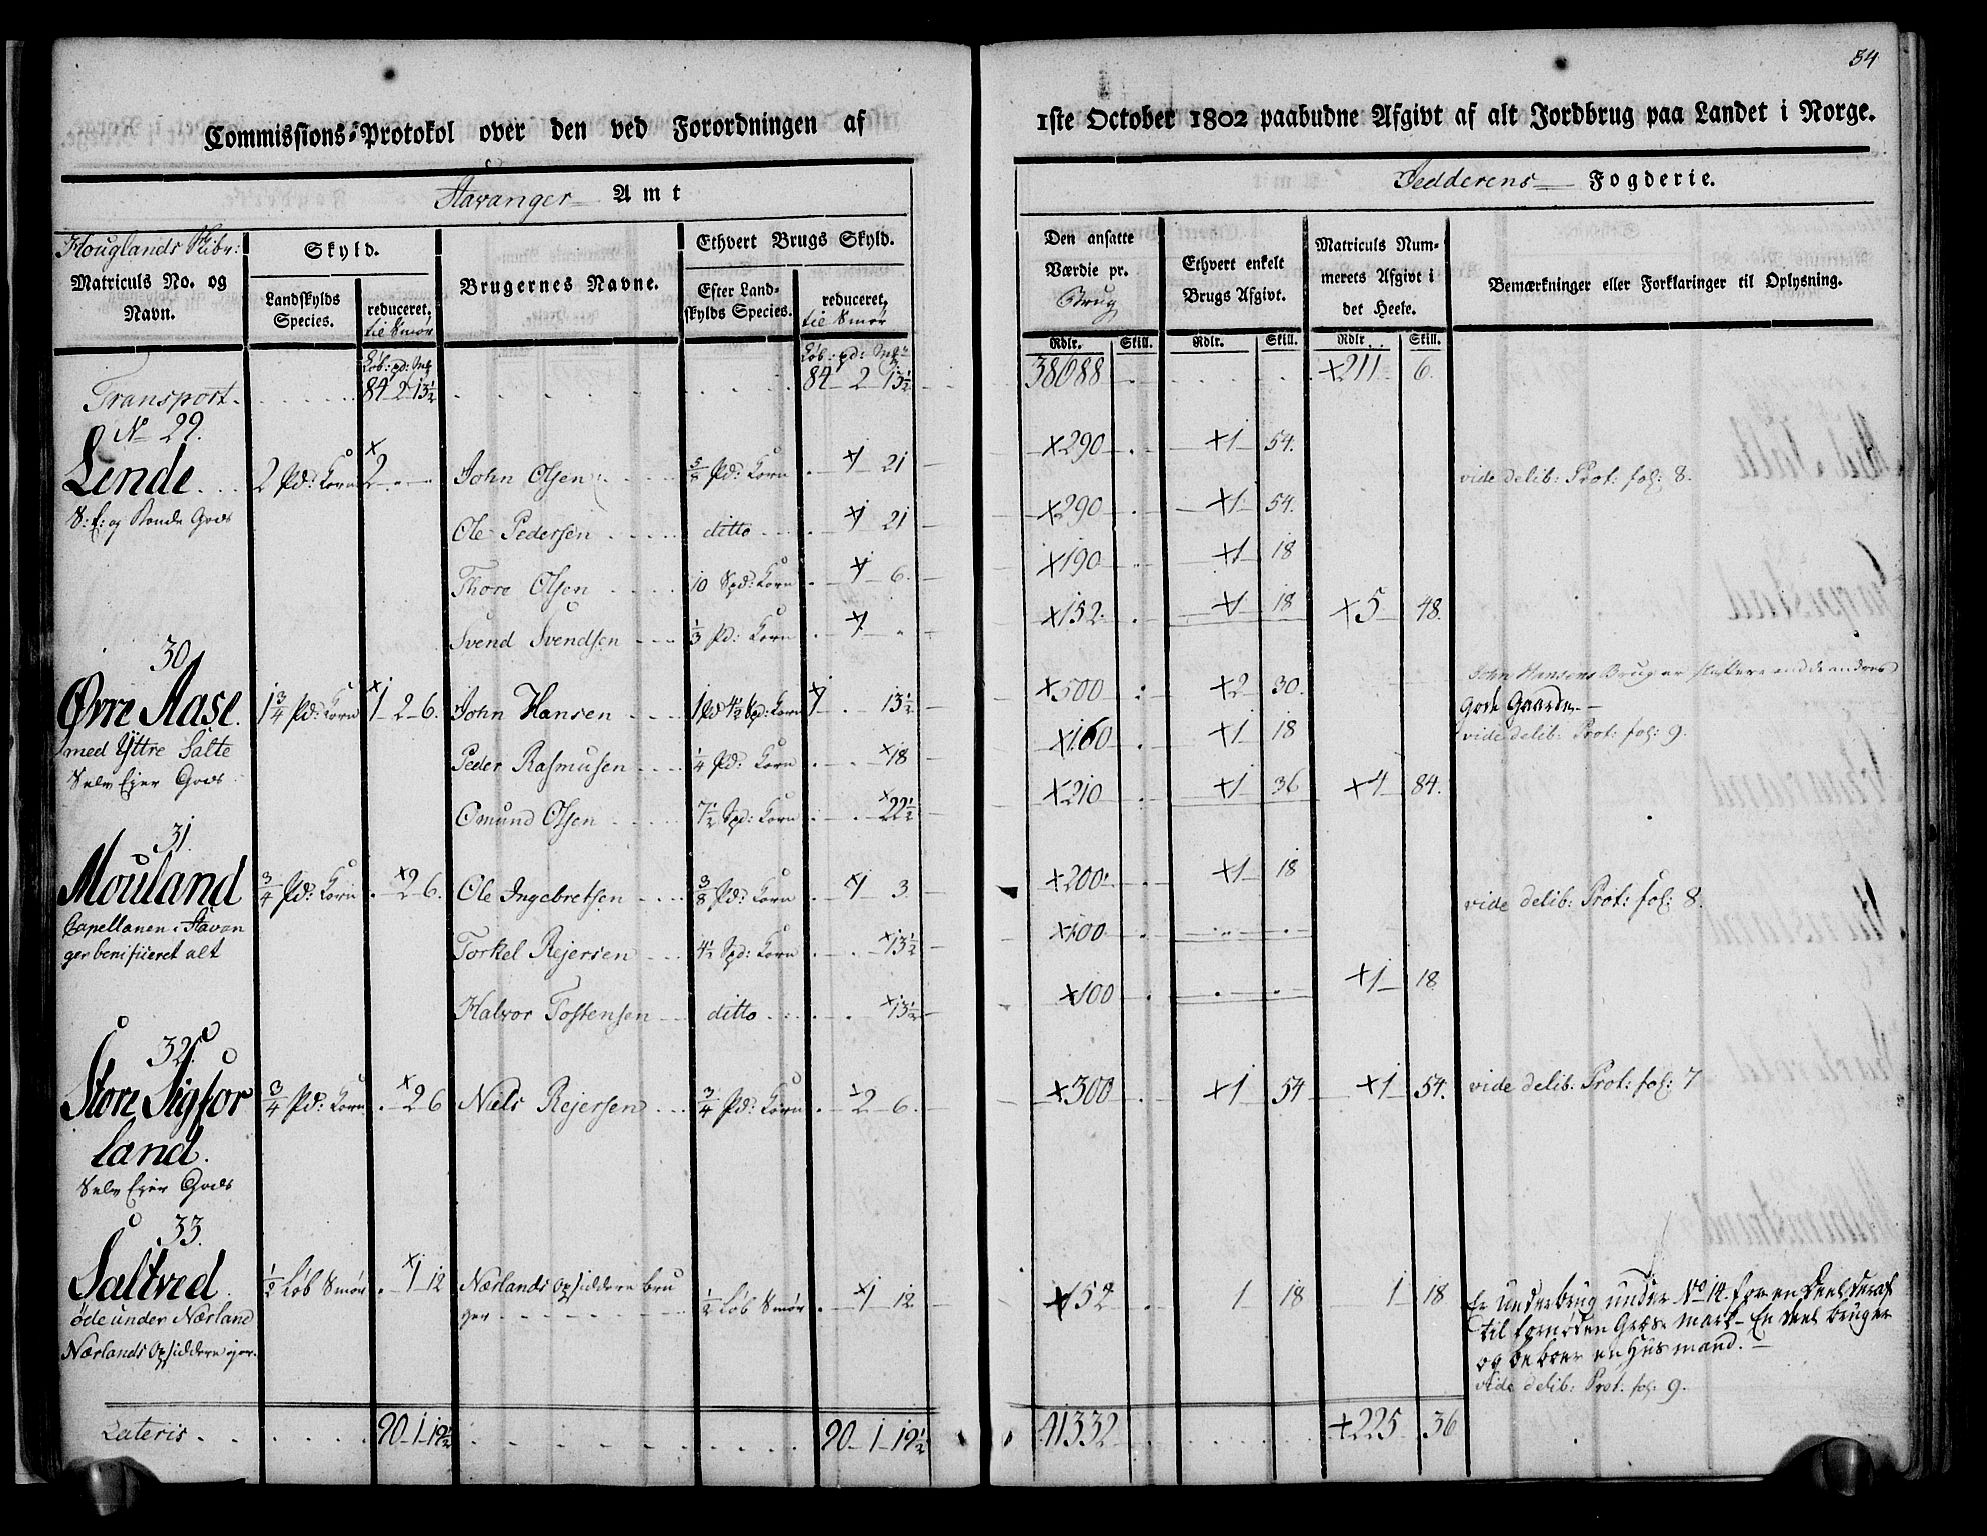 54
Commissions-Protokol over den ved Forordningen af
1ste October 1802 paabudne Afgivt af alt Jordbrug paa Landet i Norge.
Stavanger Amt
Jedderens Fogderie.
Houglands Skibr:
Matriculs No. og
Navn.
Skyld.
Landskylds
Species.
reduceret,
til Smør
Brugernes Navne.
Ethvert Brugs Skyld.
Efter Land-
skylds Species.
reduceret,
til Smør
Den ansatte
Værdie pr.
Brug
Ethvert enkelt
Brugs Afgivt.
Matriculs Num-
merets Afgivt i
det Heele.
Bemærkninger eller Forklaringer til Oplysning.
Rdlr. Skill. Rdlr. Skill. Rdlr. Skill.
Løb: pd: Løb: pd:
Transport 84 2 13½ 84 2 13½ 38688 ×211 6.
No 29.
Lende 2 Pd: Korn ×2 John Olsen 5/8 Pd: Korn ×1 21 ×290 ×1 54. vide delib: Prot: fol: 8.
S: E: og Bonde Gods
Ole Pedersen ditto ×1 21 ×290 ×1 54.
Thore Olsen 10 Spd: Korn ×1 6. ×190 ×1 18
Svend Svendsen ⅓ Pd: Korn ×1 ×152 ×1 18 ×5 48.
30.
John Hansens Brug er slettere end de andres
Øvre Aase 1¾ Pd: Korn ×1 2 6. John Hansen 1 Pd 4½ Spd: Korn ×1 13½ ×500 ×2 30. gode Gaarde.
med Yttre Salte Peder Rasmusen ¼ Pd: Korn ×18 ×160 ×1 18 vide delib: Prot: fol: 9.
Selv Ejer Gods
Omund Olsen 7½ Spd: Korn ×22½ ×210 ×1 36 ×4 84.
31.
Mouland ¾ Pd: Korn ×2 6. Ole Ingebretsen 3/8 Pd: Korn ×1 3 ×200 ×1 18 vide delib: Prot: fol: 8.
Capellanen i Stavan
ger benificeret alt Torkel Rejersen 4½ Spd: Korn ×13½ ×100
Halvor Tostensen ditto ×13½ ×100 ×1 18
32.
Store Sigfor ¾ Pd: Korn ×2 6 Næls Rejersen ¾ Pd: Korn ×2 6. ×300 ×1 54 ×1 54. vide delib: Prot: fol: 7
land.
Selv Ejer Gods
33.
Saltved ½ Løb Smør ×1 12 Nærlands Opsiddere bru ½ Løb Smør ×1 12 ×152 1 18 1 18 Er Underbrug under No 14. for en Deel deraf
øde under Nærland ger til fornøden Græs Mark - En Deel bruger
Nærlands Opsiddere ejer. og beboer en Husmand. -
vide delib: Prot. fol: 9.
Lateris 90 1 19½ 90 1 19½ 41332 ×225 36